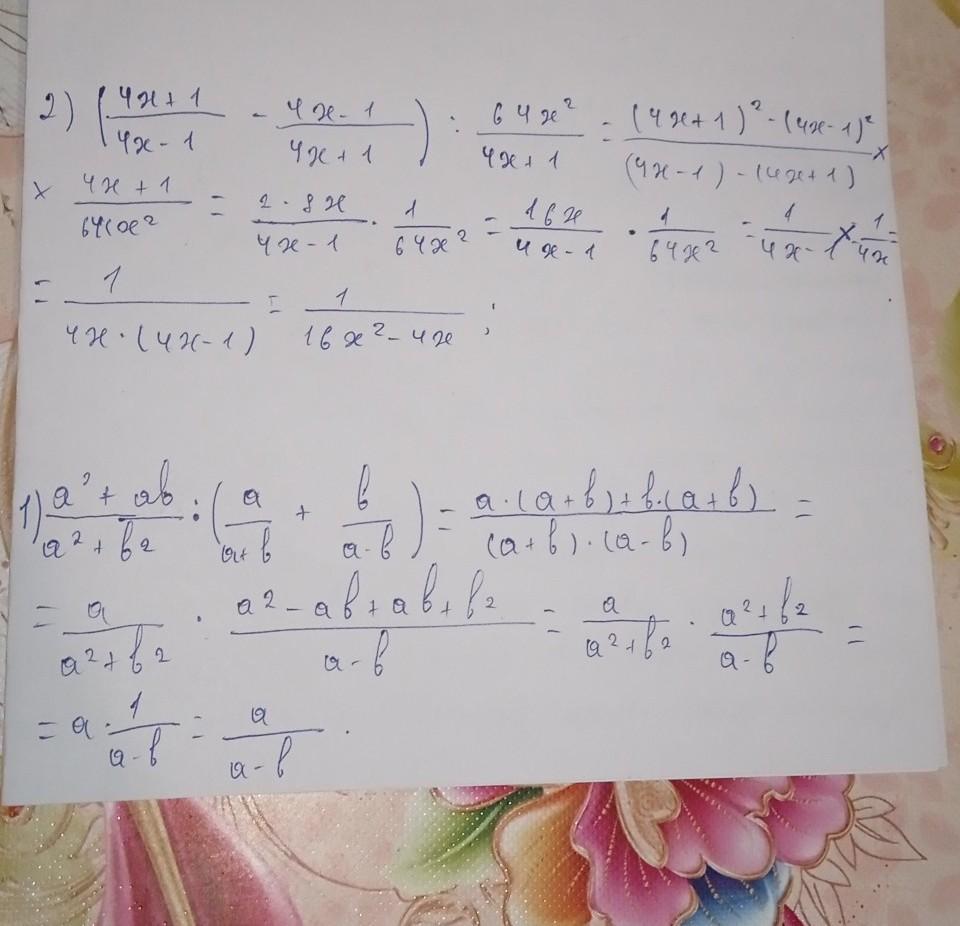 2) ((4x+1)/(4x-1) - (4x-1)/(4x+1)) : 64x²/(4x+1) = ((4x+1)²-(4x-1)²)/((4x-1)-(4x+1)) ×
× (4x+1)/(64x²) = (2·8x)/(4x-1) · 1/(64x²) = 16x/(4x-1) · 1/(64x²) = 1/(4x-1) × 1/(4x) =
= 1/(4x·(4x-1)) = 1/(16x²-4x) ;
1) (a²+ab)/(a²+b²) : (a/(a+b) + b/(a-b)) = (a·(a+b)+b·(a+b))/((a+b)·(a-b)) =
= a/(a²+b²) · (a²-ab+ab+b²)/(a-b) = a/(a²+b²) · (a²+b²)/(a-b) =
= a · 1/(a-b) = a/(a-b) .